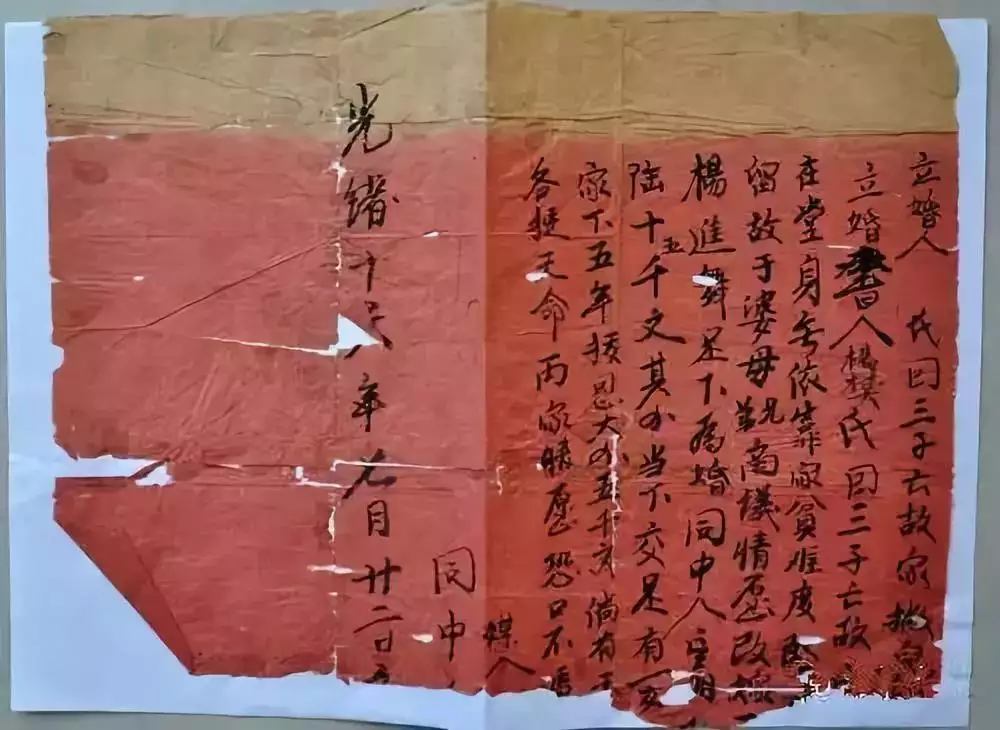 立婚人 氏囙三子亡故家撇
立婚書人楊樊氏囙三子亡故
在堂身無依靠家貧难度
故于婆母兄商議情愿改
楊進舞足下為婚同中人言明
陆十五千文其小当下交足有
家下五年接恩大小五千文倘有
各天命両家情愿恐口不
媒人
同中
光緒十八年七月廿二日